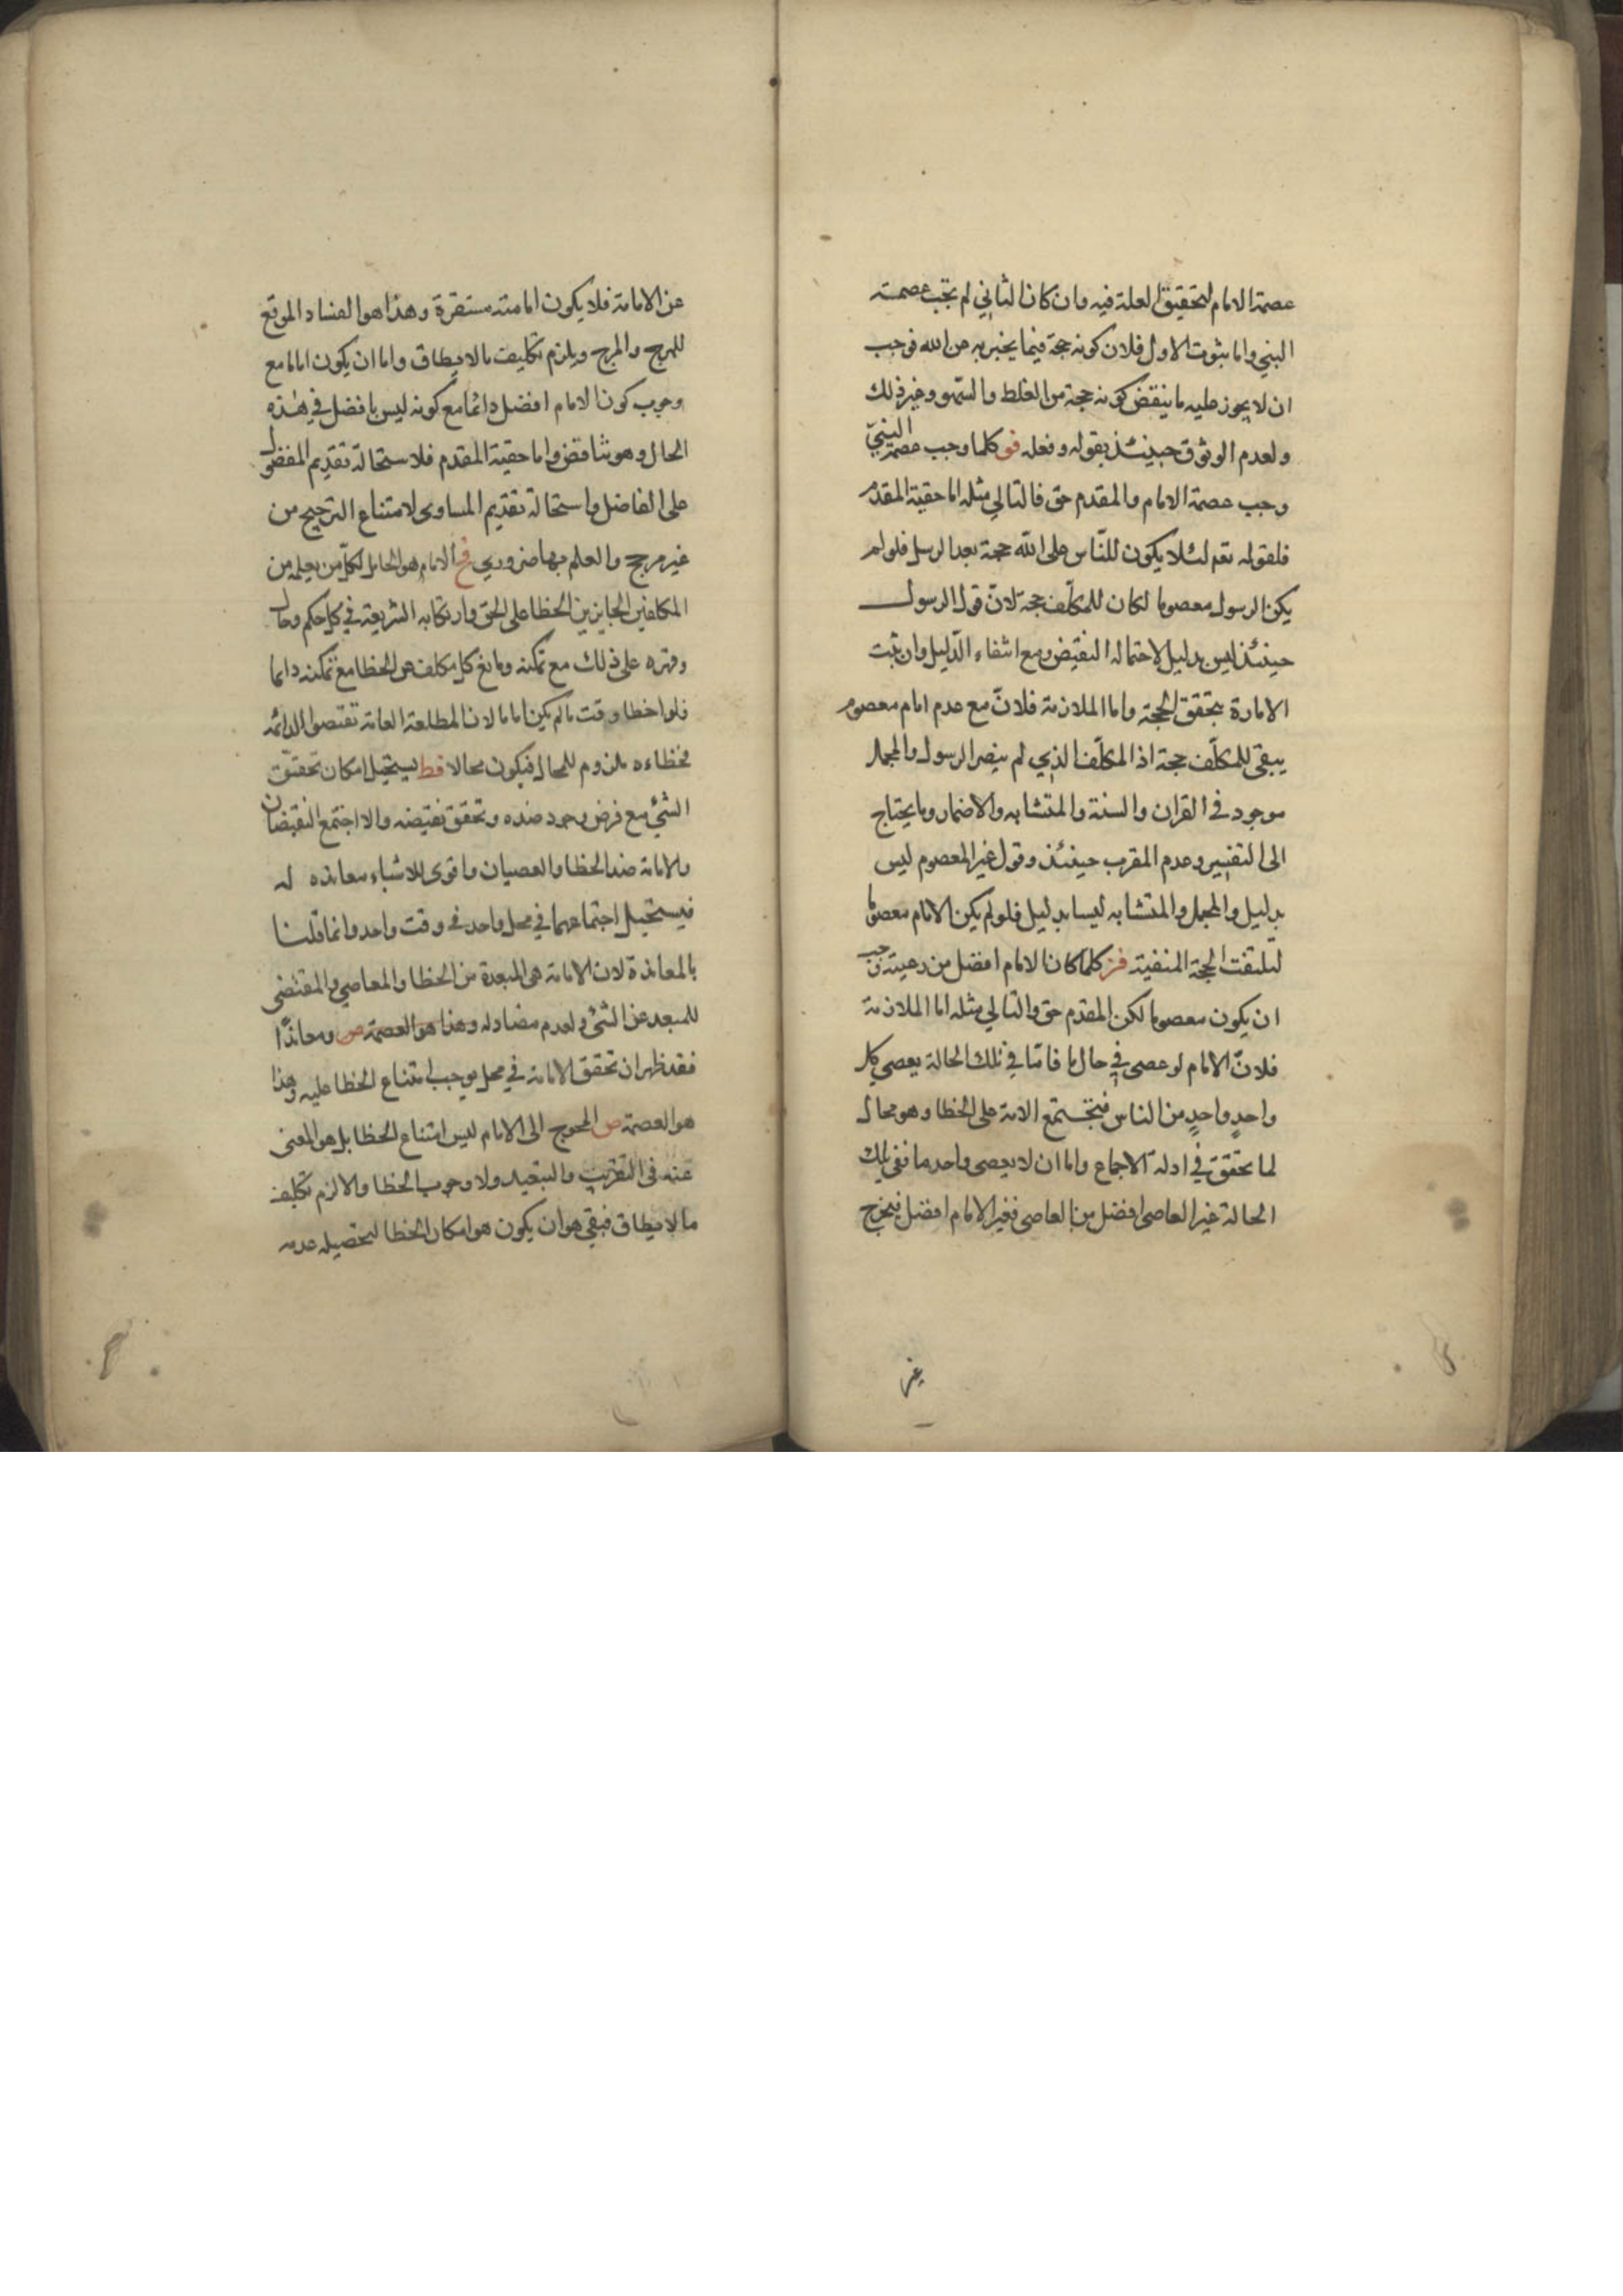 عصمة الامام لتحقيق العلة فيه وان كان الثاني لم تجب عصمته
النبي واما ثبوت الاول فلان كونه حجة فيما يخبر به عن الله فوجب
ان لا يجوز عليه ما ينقض كونه حجة من الغلط والسهو وغير ذلك
ولعدم الوثوق حينئذ بقوله وفعله فو كلما وجب عصمة النبي
وجب عصمة الامام والمقدم حق فالتالي مثله اما حقية المقدم
فلقوله تعم لئلا يكون للناس على الله حجة بعد الرسل فلو لم
يكن الرسول معصوما لكان للمكلف حجة لان قول الرسول
حينئذ ليس بدليل لاحتماله النقيض ومع انتفاء الدليل وان ثبت
الامارة يتحقق الحجة واما الملازمة فلان مع عدم امام معصوم
يبقى للمكلف حجة اذ المكلف الذي لم ينصر الرسول والمجمل
موجود في القران والسنة والمتشابه والاضمار وما يحتاج
الى التفسير وعدم المقرب حينئذ وقول غير المعصوم ليس
بدليل والمجمل والمتشابه ليسا بدليل فلو لم يكن الامام معصوما
لثبتت الحجة المنفية فز كلما كان الامام افضل من رعيته وجب
ان يكون معصوما لكن المقدم حق والتالي مثله اما الملازمة
فلان الامام لو عصى في حال ما فاما في تلك الحالة يعصي كل
واحد واحد من الناس فتجتمع الامة على الخطا وهو محال
لما تحقق في ادلة الاجماع واما ان لا يعصى واحد ما ففي تلك
الحالة غير العاصى افضل من العاصى فغير الامام افضل فيخرج
عن الامامة فلا يكون امامته مستقرة وهذا هو الفساد الموقع
للهرج والمرج ويلزم تكليف ما لا يطاق واما ان يكون اماما مع
وجوب كون الامام افضل دائما مع كونه ليس بافضل في هذه
الحال وهو تناقض واما حقية المقدم فلاستحالة تقديم المفضول
على الفاضل واستحالة تقديم المساوى لامتناع الترجيح من
غير مرجح والعلم بها ضروري فح الامام هو الحامل لكل من يعلم من
المكلفين الجايزين الخطا على الحق وارتكابه الشريعة في كل حكم وحال
وقهره على ذلك مع تمكنه ومانع كل مكلف من الخطا مع تمكنه دائما
فلو اخطا وقت ما لم يكن اماما لان المطلقة العامة تقتصوا الدائمه
فخطاءه ملزوم للمحال فيكون محالا فط يستحيل امكان تحقق
الشئ مع فرض وجود ضده وتحقق نقيضه والا اجتمع النقيضان
والامامة ضد الخطا والعصيان واقوى للاشياء معانده له
فيستحيل اجتماعهما في محل واحد في وقت واحد وانما قلنا
بالمعاندة لان الامامة هي المبعدة من الخطا والمعاصي والمقتضى
للمبعد عن الشئ ولعدم مضاد له وهذا هو العصمة ص ومعاندا
فقد ظهر ان تحقق الامامة في محل يوجب امتناع الخطا عليه وهذا
هو العصمة ص المحوج الى الامام ليس امتناع الخطا بل هو المغنى
عنه فى التقريب والتبعيد ولا وجوب الخطا والا لزم تكليف
ما لا يطاق فبقي هو ان يكون هو امكان الخطا لتحصيله عدم